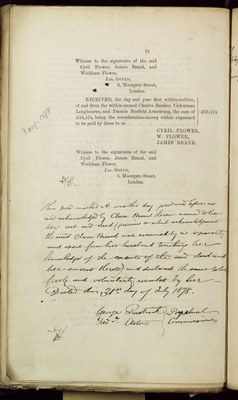 18
Witness to the signatures of the said
Cyril Flower, James Brand, and
Wickham Flower,
JAS. GOUGH,
8, Moorgate Street,
London.
RECEIVED, the day and year first within-written,
of and from the within-named Charles Bamken Vickerman
Longbourne, and Francis Stanfield Armstrong, the sum of
£59,474, being the consideration-money within expressed £59,474
to be paid by them to us
CYRIL FLOWER,
W. FLOWER,
JAMES BRAND.
Witness to the signatures of the said
Cyril Flower, James Brand, and
Wickham Flower,
JAS. GOUGH,
8, Moorgate Street,
London.
This deed marked A was this day produced before us
and acknowledged by Clara Brand therein named to be
her act and deed previous to which acknowledgment
the said Clara Brand was examined by us separately
and apart from her husband touching her
knowledge of the contents of the said deed and
her consent thereto and declared the same to be
freely and voluntarily executed by her
Dated this 31st day of July 1878.
George
Commissioners